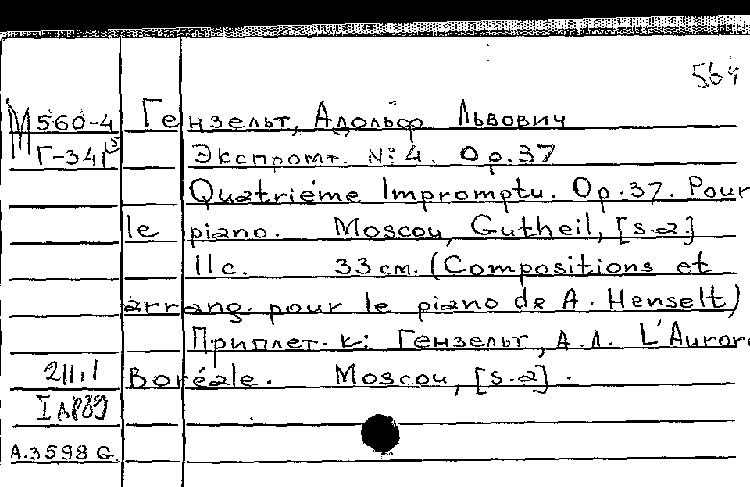 564
М560-4 Гензельт, Адольф Львович
Г-341 Экспромт. №4. Op.37
Quatrième Impromptu. Op.37. Pour
le piano. Moscou, Gutheil, [s.a]
11с. 33 см. (Compositions et
arrang. pour le piano de A. Henselt)
Приплет. к: Гензельт, А.Л. L'Aurore
211,1 Boréale. Moscou, [s.a].
A.3598 G.